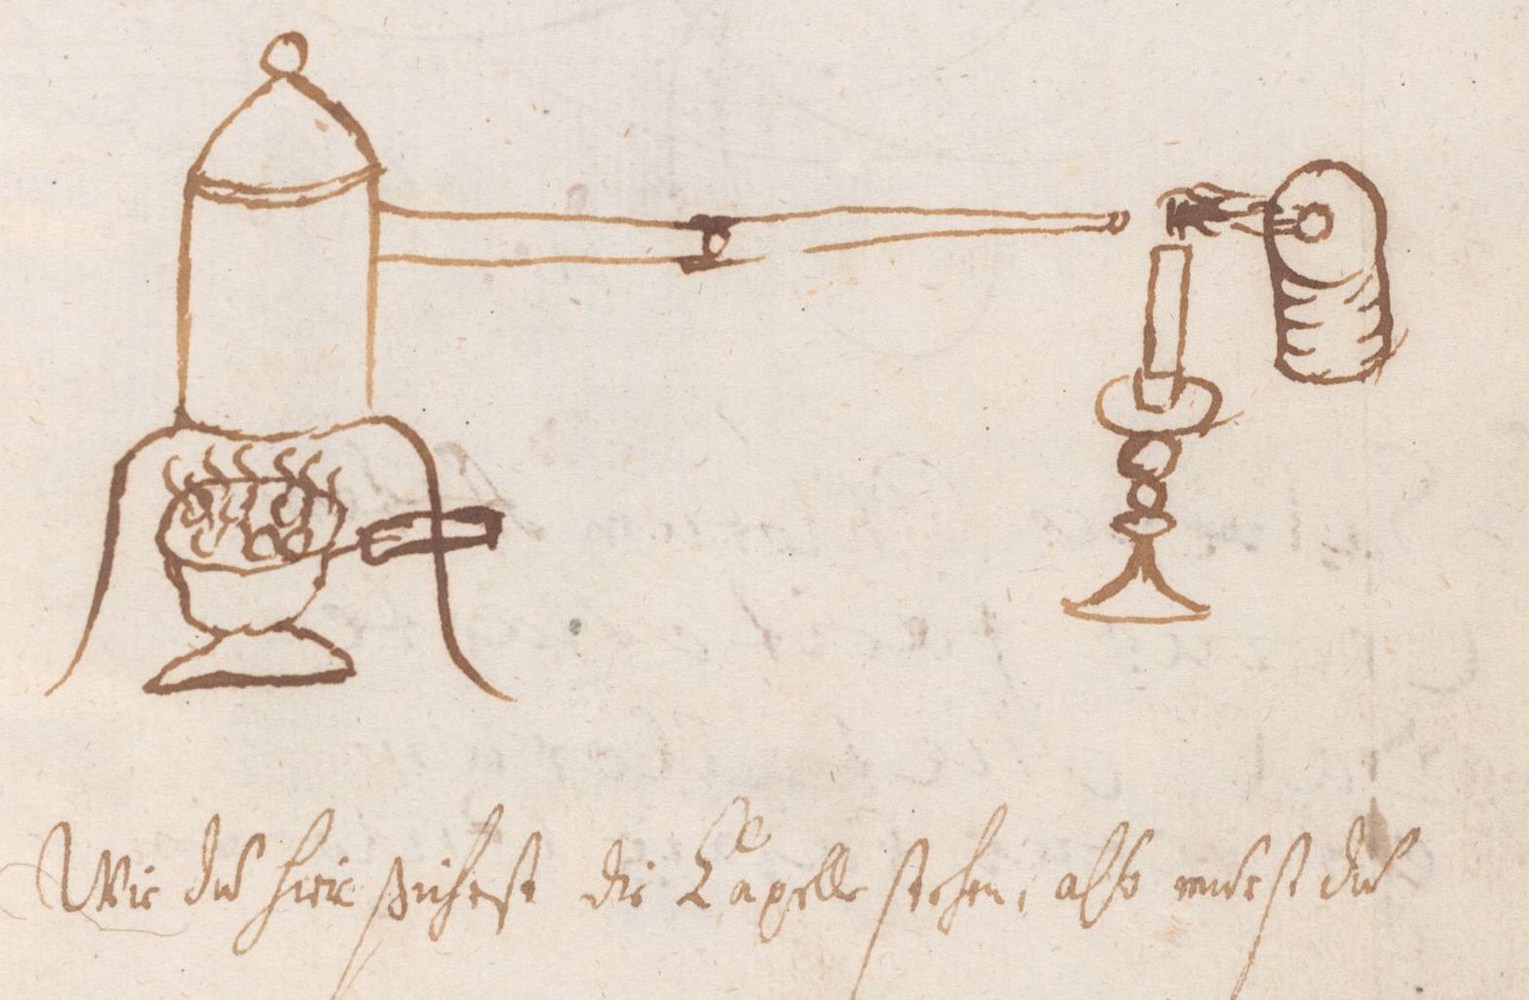 Wie du hier sihest die Capelle stehen, also mustu du